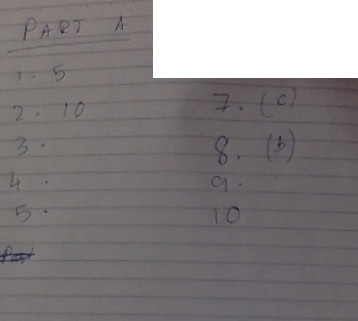 PART A
1. 5
2. 10
3.
4.
5.
7. (c)
8. (b)
9.
10